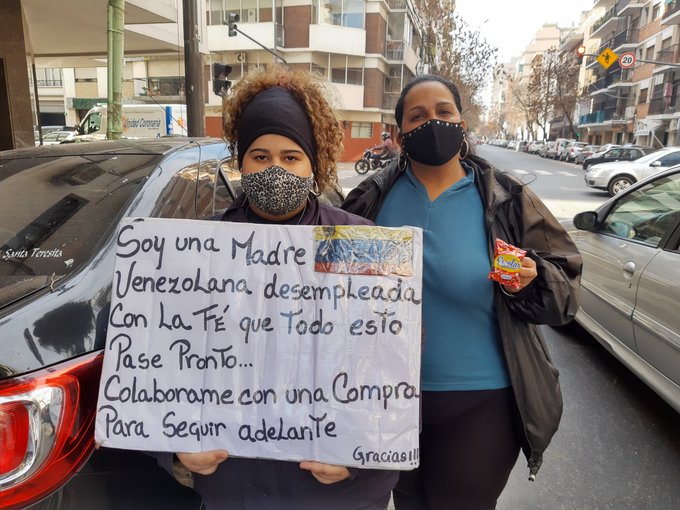 Soy una Madre
Venezolana desempleada
Con La Fé que Todo esto
Pase Pronto...
Colaborame con una Compra
Para Seguir adelante
Gracias!!!
Santa Teresita
Unidad Coronaria
20